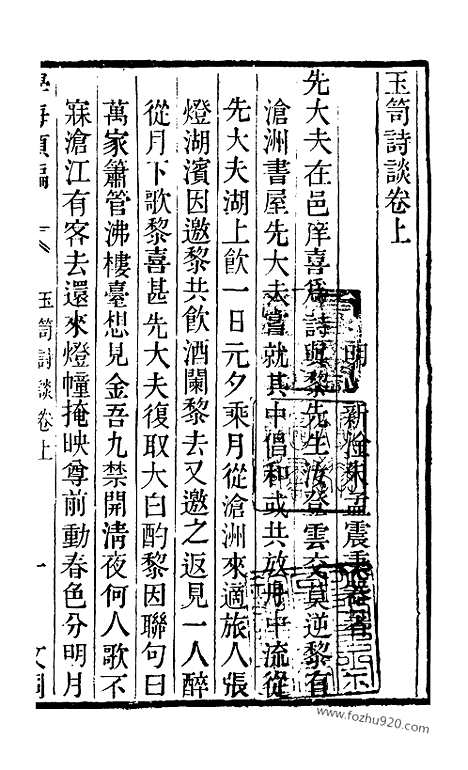 玉笥詩談卷上
明 新淦朱孟震秉器著
先大夫在邑庠喜爲詩與黎先生汝登雲交莫逆黎有
滄洲書屋先大夫嘗就其中倡和或共放舟中流從
先大夫湖上飲一日元夕乘月從滄洲來適旅人張
燈湖濱因邀黎共飲酒闌黎去又邀之返見一人醉
從月下歌黎喜甚先大夫復取大白酌黎因聯句曰
萬家簫管沸樓臺想見金吾九禁開清夜何人歌不
寐滄江有客去還來燈幢掩映尊前動春色分明月
學海類編
玉笥詩談卷上
一
www.fozhu920.com